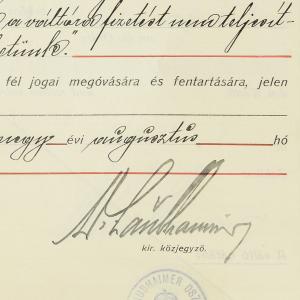 a váltóra fizetést nem teljesít-
hetünk".
fél jogai megóvására és fentartására, jelen
négy évi augusztus hó
kir. közjegyző.